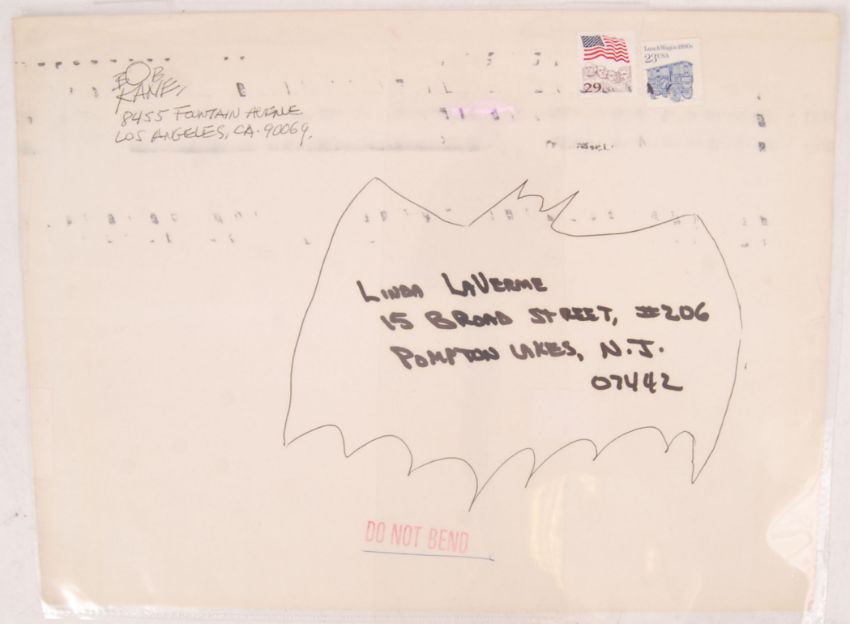 BOB
KANE,
8455 FOUNTAIN AVENUE
LOS ANGELES, CA. 90069.
29
Lunch Wagon 1890s
23 USA
LINDA LAVERME
15 BROAD STREET, #206
POMPTON LAKES, N.J.
07442
DO NOT BEND